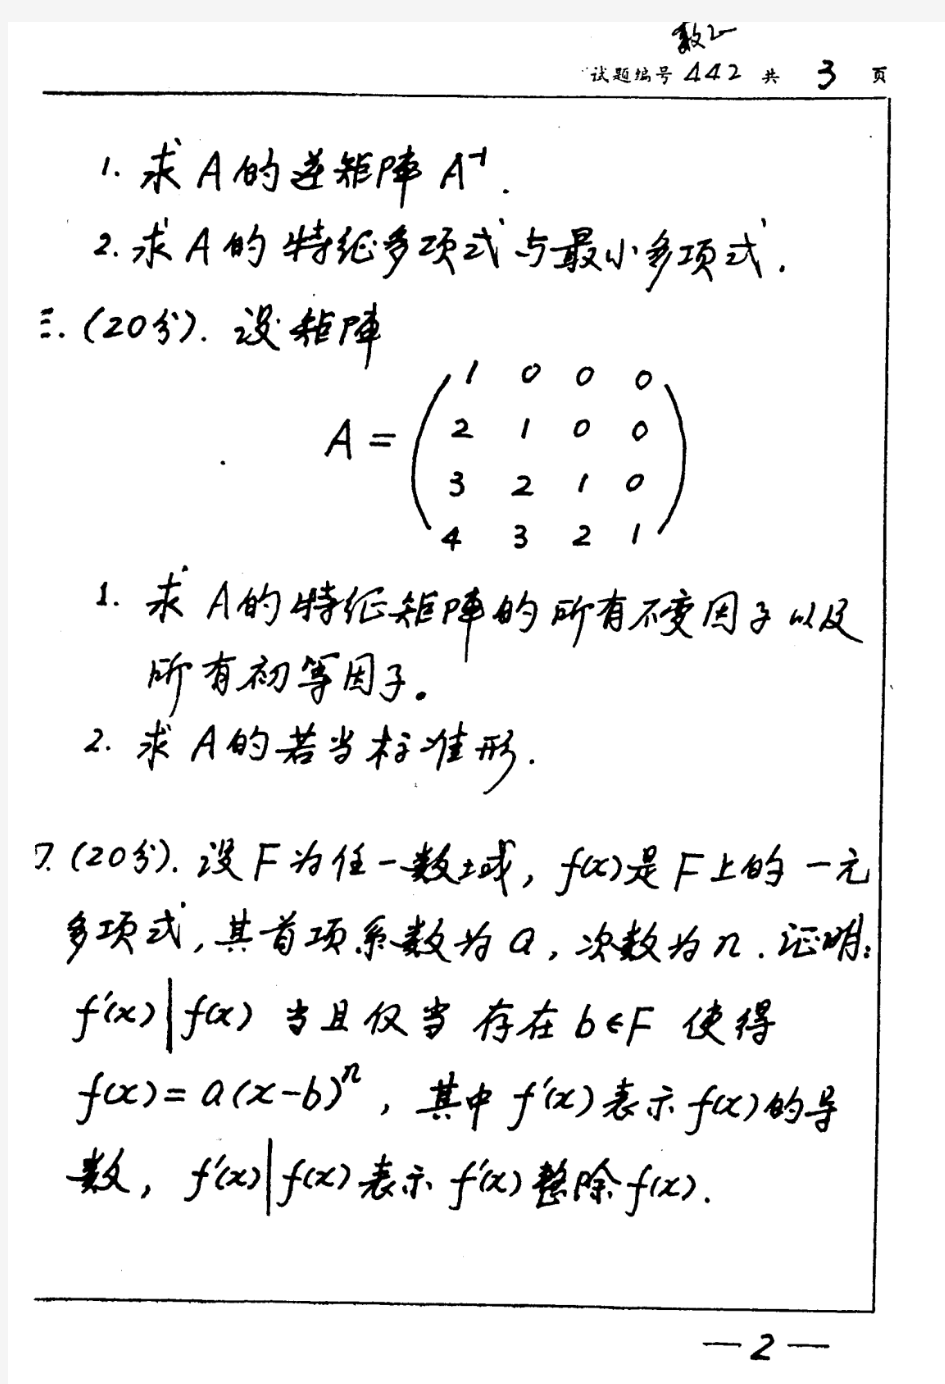 数2
试题编号 442 共 3 页
1. 求A的逆矩阵 A⁻¹.
2. 求A的特征多项式与最小多项式.
三.(20分). 设矩阵
A = ( 1 0 0 0
2 1 0 0
3 2 1 0
4 3 2 1 )
1. 求A的特征矩阵的所有不变因子以及
所有初等因子。
2. 求A的若当标准形.
(20分). 设F为任一数域, f(x)是F上的一元
多项式, 其首项系数为a, 次数为n. 证明:
f'(x)|f(x) 当且仅当 存在 b∈F 使得
f(x)=a(x-b)ⁿ, 其中 f'(x)表示f(x)的导
数, f'(x)|f(x)表示 f'(x)整除f(x).
—2—